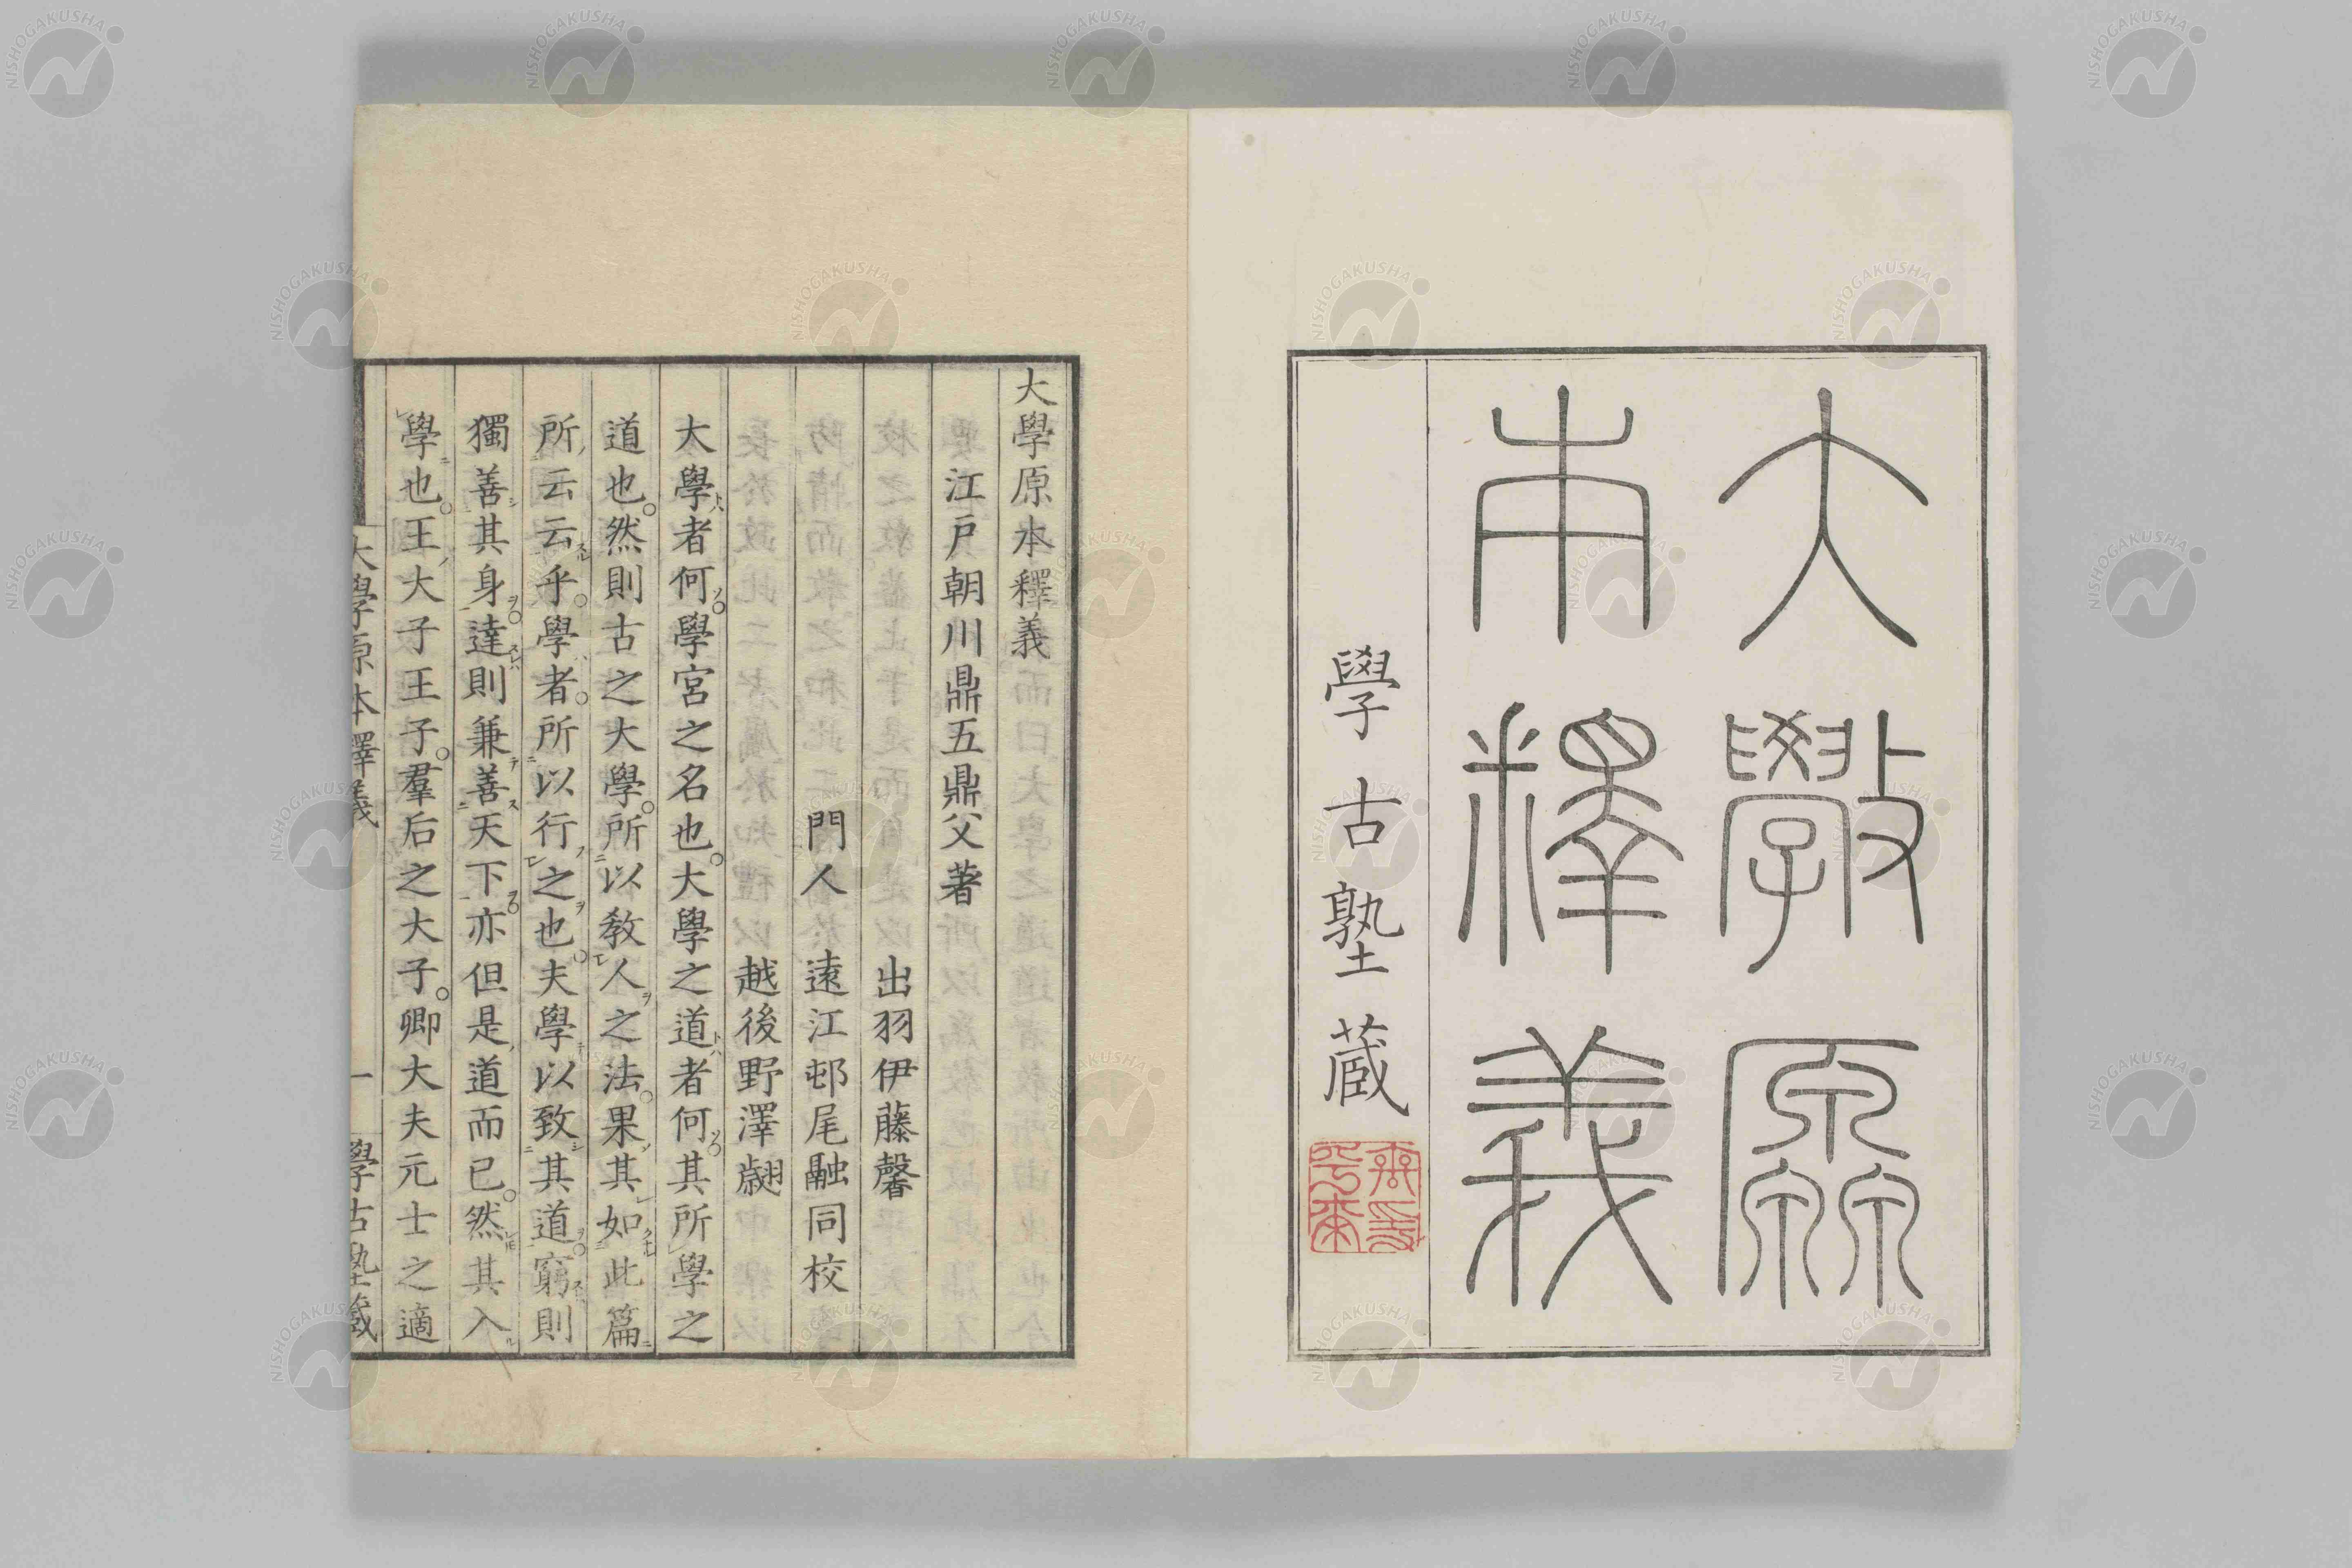 大斆原
本釋義
學古塾蔵
大學原本釋義
江戸朝川鼎五鼎父著
出羽伊藤馨
門人 遠江邨尾融同校
越後野澤翽
大學者何學宮之名也大學之道者何其所學之
道也然則古之大學所以教人之法果其如此篇
所云云乎學者所以行之也夫學以致其道窮則
獨善其身達則兼善天下亦但是道而已然其入
學也王大子王子羣后之大子卿大夫元士之適
大學原本釋義 一 學古塾蔵
NISHOGAKUSHA